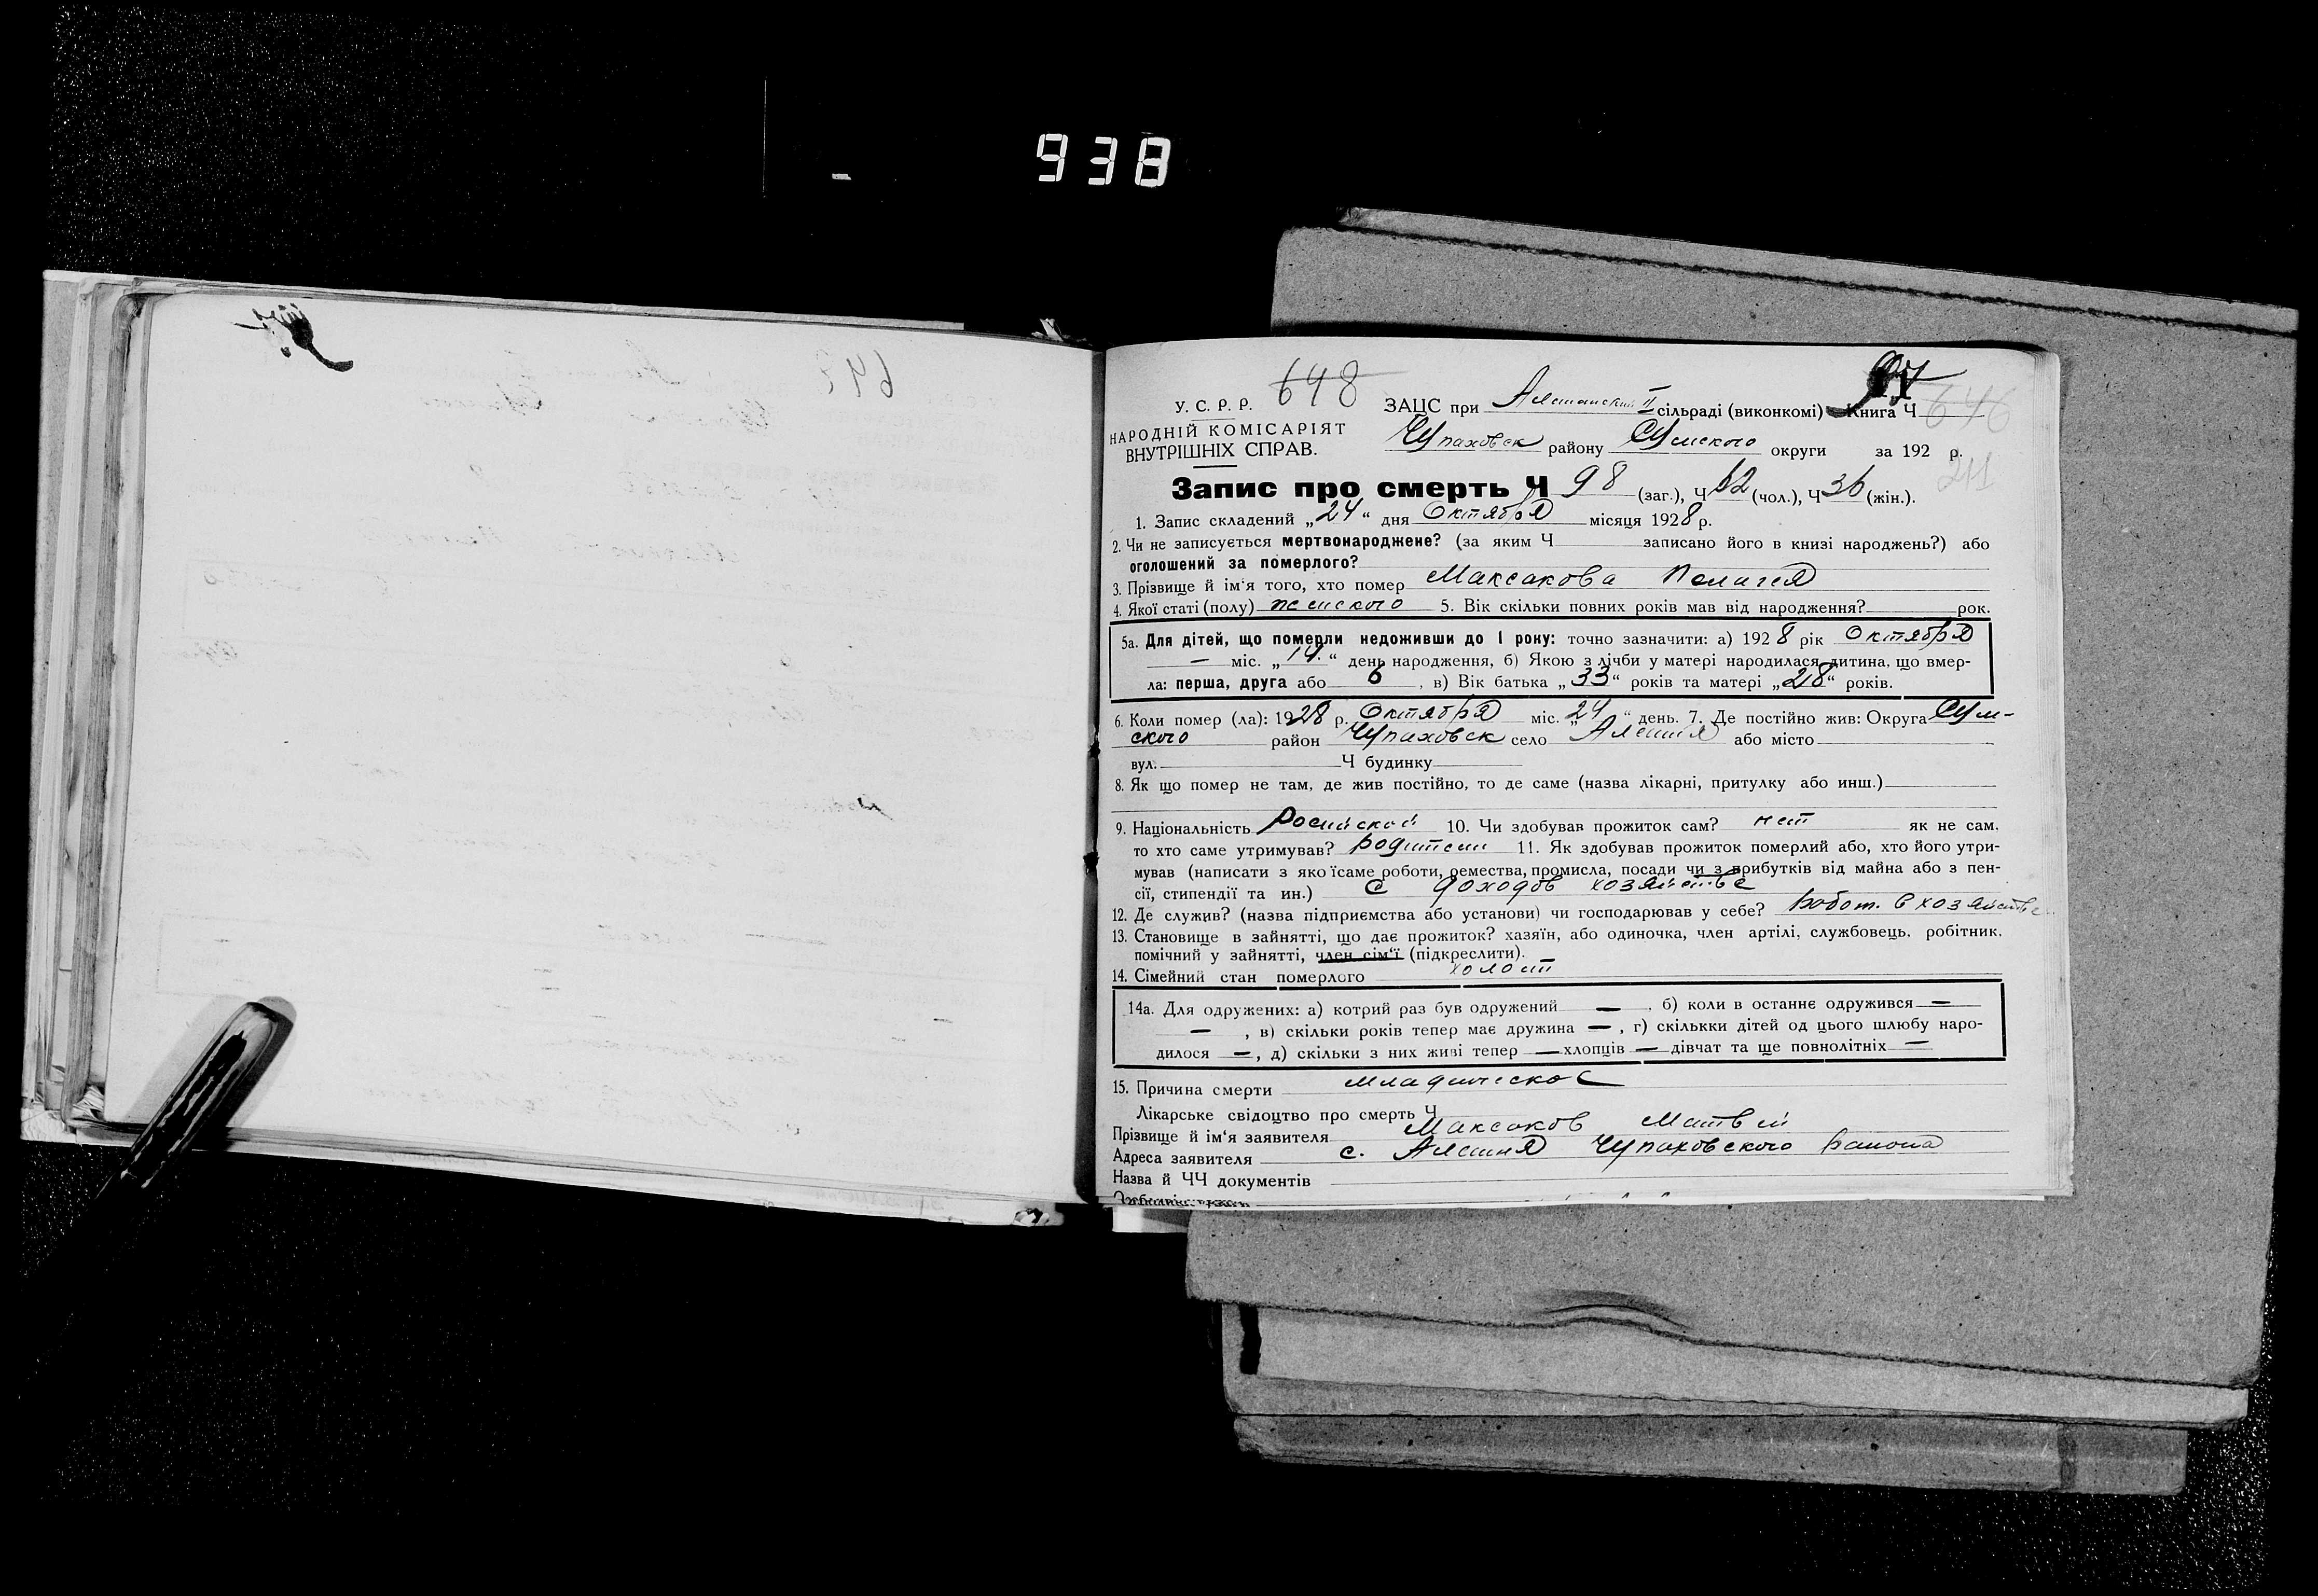 938
648
У. С. Р. Р.
НАРОДНІЙ КОМІСАРІЯТ
ВНУТРІШНІХ СПРАВ.
ЗАЦС при Алешанский II сільраді (виконкомі) Книга Ч 646
Чупаховск району Сумского округи за 192 р.
211
Запис про смерть Ч 98 (заг.), Ч 62 (чол.), Ч 36 (жін.).
1. Запис складений „24“ дня Октября місяця 1928 р.
2. Чи не записується мертвонароджене? (за яким Ч записано його в книзі народжень?) або
оголошений за померлого?
3. Прізвище й ім'я того, хто помер Максакова Пелагея
4. Якої статі (полу) женского 5. Вік скільки повних років мав від народження? рок.
5а. Для дітей, що померли недоживши до 1 року: точно зазначити: а) 1928 рік Октября
— міс. „14.“ день народження, б) Якою з лічби у матері народилася дитина, що вмер-
ла: перша, друга або 6, в) Вік батька „33“ років та матері „28“ років.
6. Коли помер (ла): 1928 р. Октября міс. „24“ день. 7. Де постійно жив: Округа Сум-
ского район Чупаховск село Алешня або місто
вул. Ч будинку
8. Як що помер не там, де жив постійно, то де саме (назва лікарні, притулку або инш.)
9. Національність Росийской 10. Чи здобував прожиток сам? нет як не сам,
то хто саме утримував? родители 11. Як здобував прожиток померлий або, хто його утри-
мував (написати з якоїсаме роботи, ремества, промисла, посади чи з прибутків від майна або з пен-
сії, стипендії та ин.) С доходов хозяйства
12. Де служив? (назва підприємства або установи) чи господарював у себе? работ. в хозяйстве
13. Становище в зайнятті, що дає прожиток? хазяїн, або одиночка, член артілі, службовець, робітник,
помічний у зайнятті, член сім'ї (підкреслити).
14. Сімейний стан померлого холост
14а. Для одружених: а) котрий раз був одружений — , б) коли в останнє одружився —
— , в) скільки років тепер має дружина — , г) скількки дітей од цього шлюбу наро-
дилося — , д) скільки з них живі тепер — хлопців — дівчат та ще повнолітніх —
15. Причина смерти младическое
Лікарське свідоцтво про смерть Ч
Прізвище й ім'я заявителя Максаков Матвей
Адреса заявителя с. Алешня Чупаховского района
Назва й ЧЧ документів